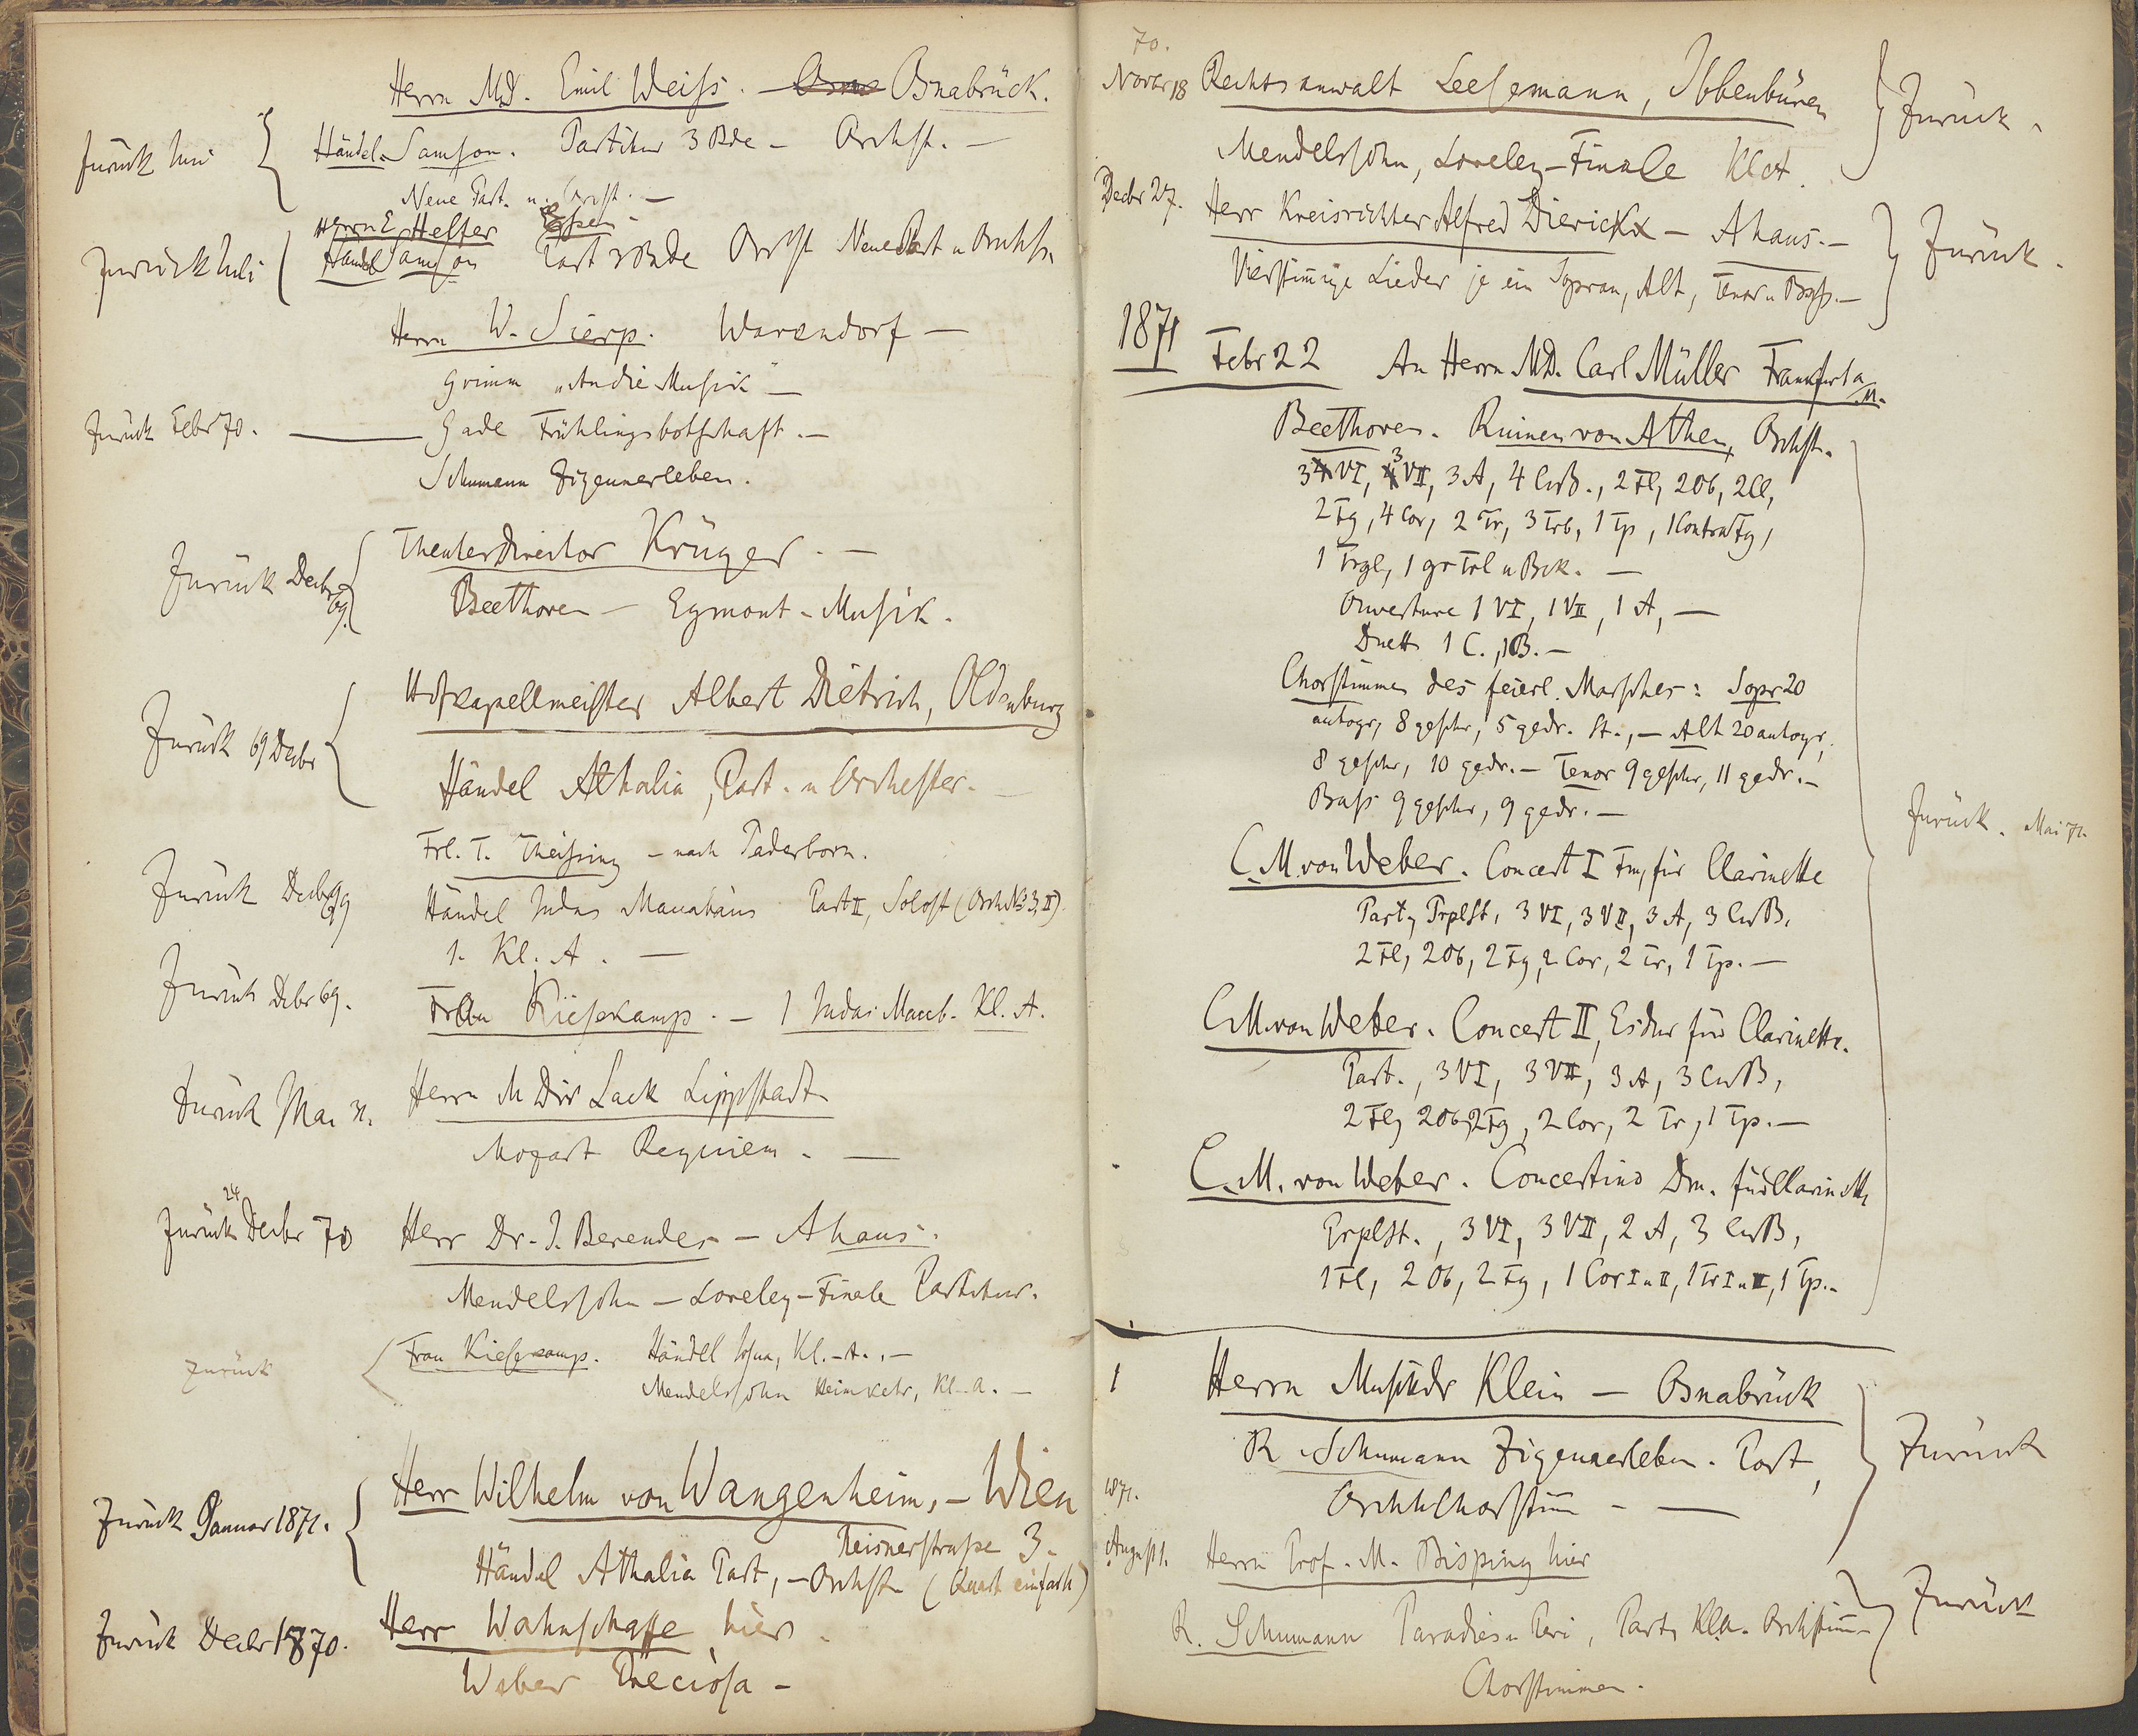 Herrn MD. Emil Weiss. — Osna Osnabrück.
Zurück Juni Händel. Samson. Partitur 3 Bde — Orchst. —
Neue Part. u. Orchst. —
Herrn E Helfer Essen —
Zurück Juli Händel Samson Part 3 Bnde Orchst Neue Part u Orchstr
Herrn W. Sierp. Warendorf —
Grimm "An die Musik" —
Zurück Febr 70. — Gade Frühlingsbotschaft. —
Schumann Zigeunerleben.
Zurück Decbr 69. Theaterdirector Krüger. —
Beethoven — Egmont-Musik.
Zurück 69 Decbr Hofkapellmeister Albert Dietrich, Oldenburg
Händel Athalia, Part. u Orchester. —
Frl. T. Theissing — nach Paderborn.
Zurück Decbr 69 Händel Judas Maccabäus Part II, Solost (Orch. No 3, II).
1. Kl. A. —
Zurück Debr 69. Frau Kiesekamp. — 1 Judas Maccb. Kl. A.
Zurück Mai 71. Herrn M Dir Lack Lippstadt
Mozart Requiem. —
Zurück 24 Decbr 70 Herr Dr. J. Berendes — Ahaus.
Mendelssohn — Loreley-Finale Partitur.
zurück Frau Kiesekamp. Händel Josua, Kl.-A., —
Mendelssohn Heimkehr, Kl.-A. —
Zurück Januar 1871. Herr Wilhelm von Wangenheim, — Wien
Reisnerstrasse 3.
Händel Athalia Part, — Orchstr (Quart einfach)
Zurück Decbr 1870. Herr Wahnschaffe hier.
Weber Preciosa —
70.
Novbr 18 Rechtsanwalt Leesemann, Ibbenbüren Zurück.
Mendelssohn, Loreley-Finale Kl A.
Decbr 27. Herr Kreisrichter Alfred Dierickx — Ahaus. — Zurück.
Vierstimmige Lieder je ein Sopran, Alt, Tenor u Bass. —
1871 Febr 22 An Herrn MD. Carl Müller Frankfurt a/M.
Beethoven. Ruinen von Athen, Orchst.
3 4 VI, 4 3 VII, 3 A, 4 CuB., 2 Fl, 2 Ob, 2 Cl,
2 Fg, 4 Cor, 2 Tr, 3 Trb, 1 Tp, 1 ContraFg,
1 Trgl, 1 gr Trl u Bck. —
Ouverture 1 VI, 1 VII, 1 A, —
Duett 1 C., 1 B. —
Chorstimmen des feierl. Marsches: Sopr 20
autogr, 8 geschr, 5 gedr. St., — Alt 20 autogr,
8 geschr, 10 gedr. — Tenor 9 geschr, 11 gedr. —
Bass 9 geschr, 9 gedr. —
Zurück. Mai 71.
C. M. von Weber. Concert I Fm, für Clarinette
Part, Prplst, 3 VI, 3 VII, 3 A, 3 CuB,
2 Fl, 2 Ob, 2 Fg, 2 Cor, 2 Tr, 1 Tp. —
C. M. von Weber. Concert II, Es dur für Clarinette.
Part., 3 VI, 3 VII, 3 A, 3 CuB,
2 Fl, 2 Ob, 2 Fg, 2 Cor, 2 Tr, 1 Tp. —
C. M. von Weber. Concertino Dm. für Clarinette
Prplst., 3 VI, 3 VII, 2 A, 3 CuB,
1 Fl, 2 Ob, 2 Fg, 1 Cor I u II, 1 Tr I u II, 1 Tp. —
1 Herrn Musikdr Klein — Osnabrück
R. Schumann Zigeunerleben. Part, Zurück
Orch u Chorstim — —
1871.
August 1. Herrn Prof. M. Bisping hier
R. Schumann Paradies u Peri, Part, Kl A. Orchstim — Zurück
Chorstimmen.